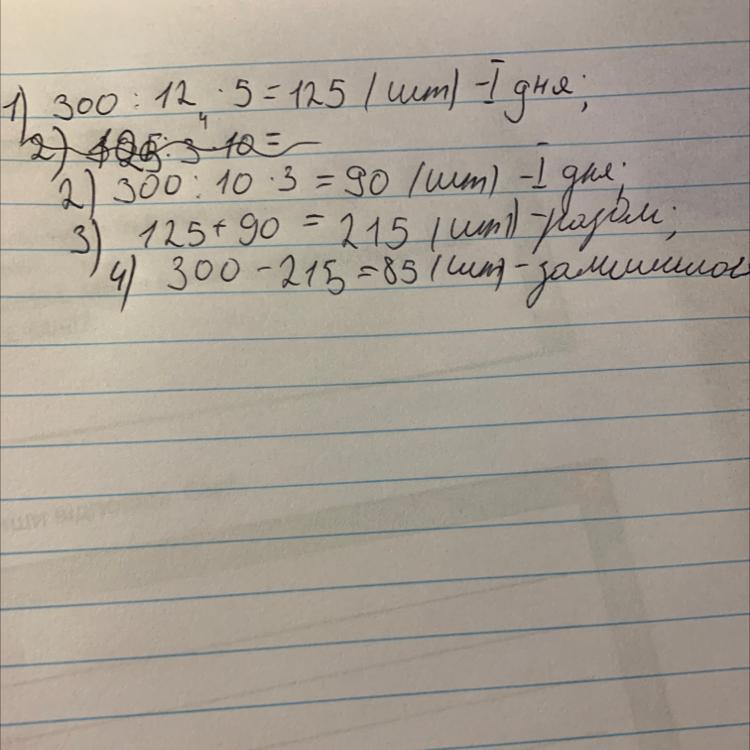 1) 300 : 12 · 5 = 125 (шт) - I дня;
2) 300 : 10 · 3 = 90 (шт) - I дня;
3) 125 + 90 = 215 (шт) - разом;
4) 300 - 215 = 85 (шт) - залишилос